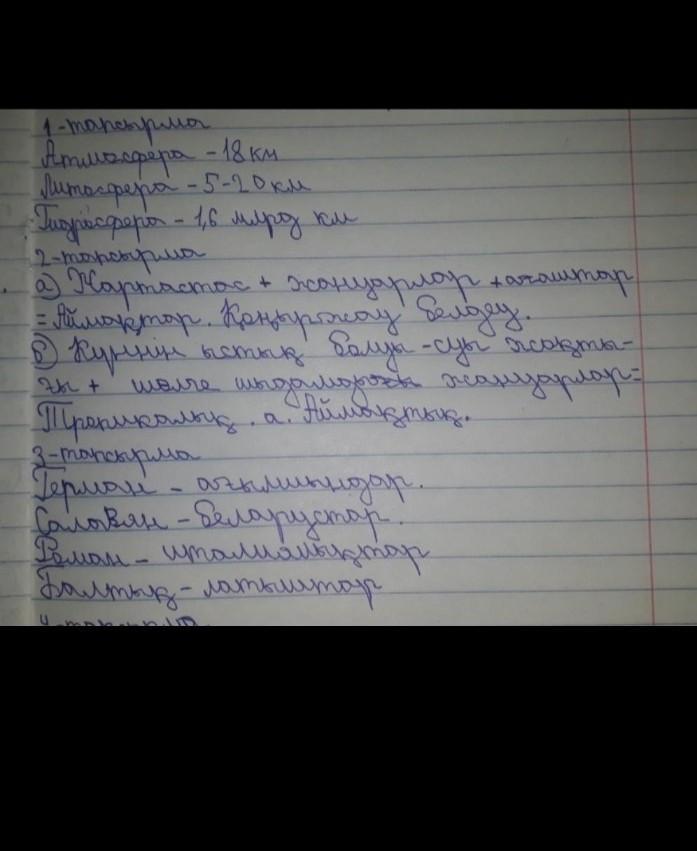 1-тапсырма
Атмосфера - 18 км
Литосфера - 5-20 км
Гидросфера - 1,6 млрд км
2-тапсырма
а) Картастас + жануарлар + ағаштар
= Аймақтар. Қоңыржай белдеу.
б) Күннің ыстық болуы - суы жақты-
ғы + шөлге шыдамды жануарлар =
Тропикалық . а. Аймақтық.
3-тапсырма
Герман - ағылшындар.
Салавян - белорустар.
Роман - италиялықтар
Балтық - латыштар
4-тапсырма